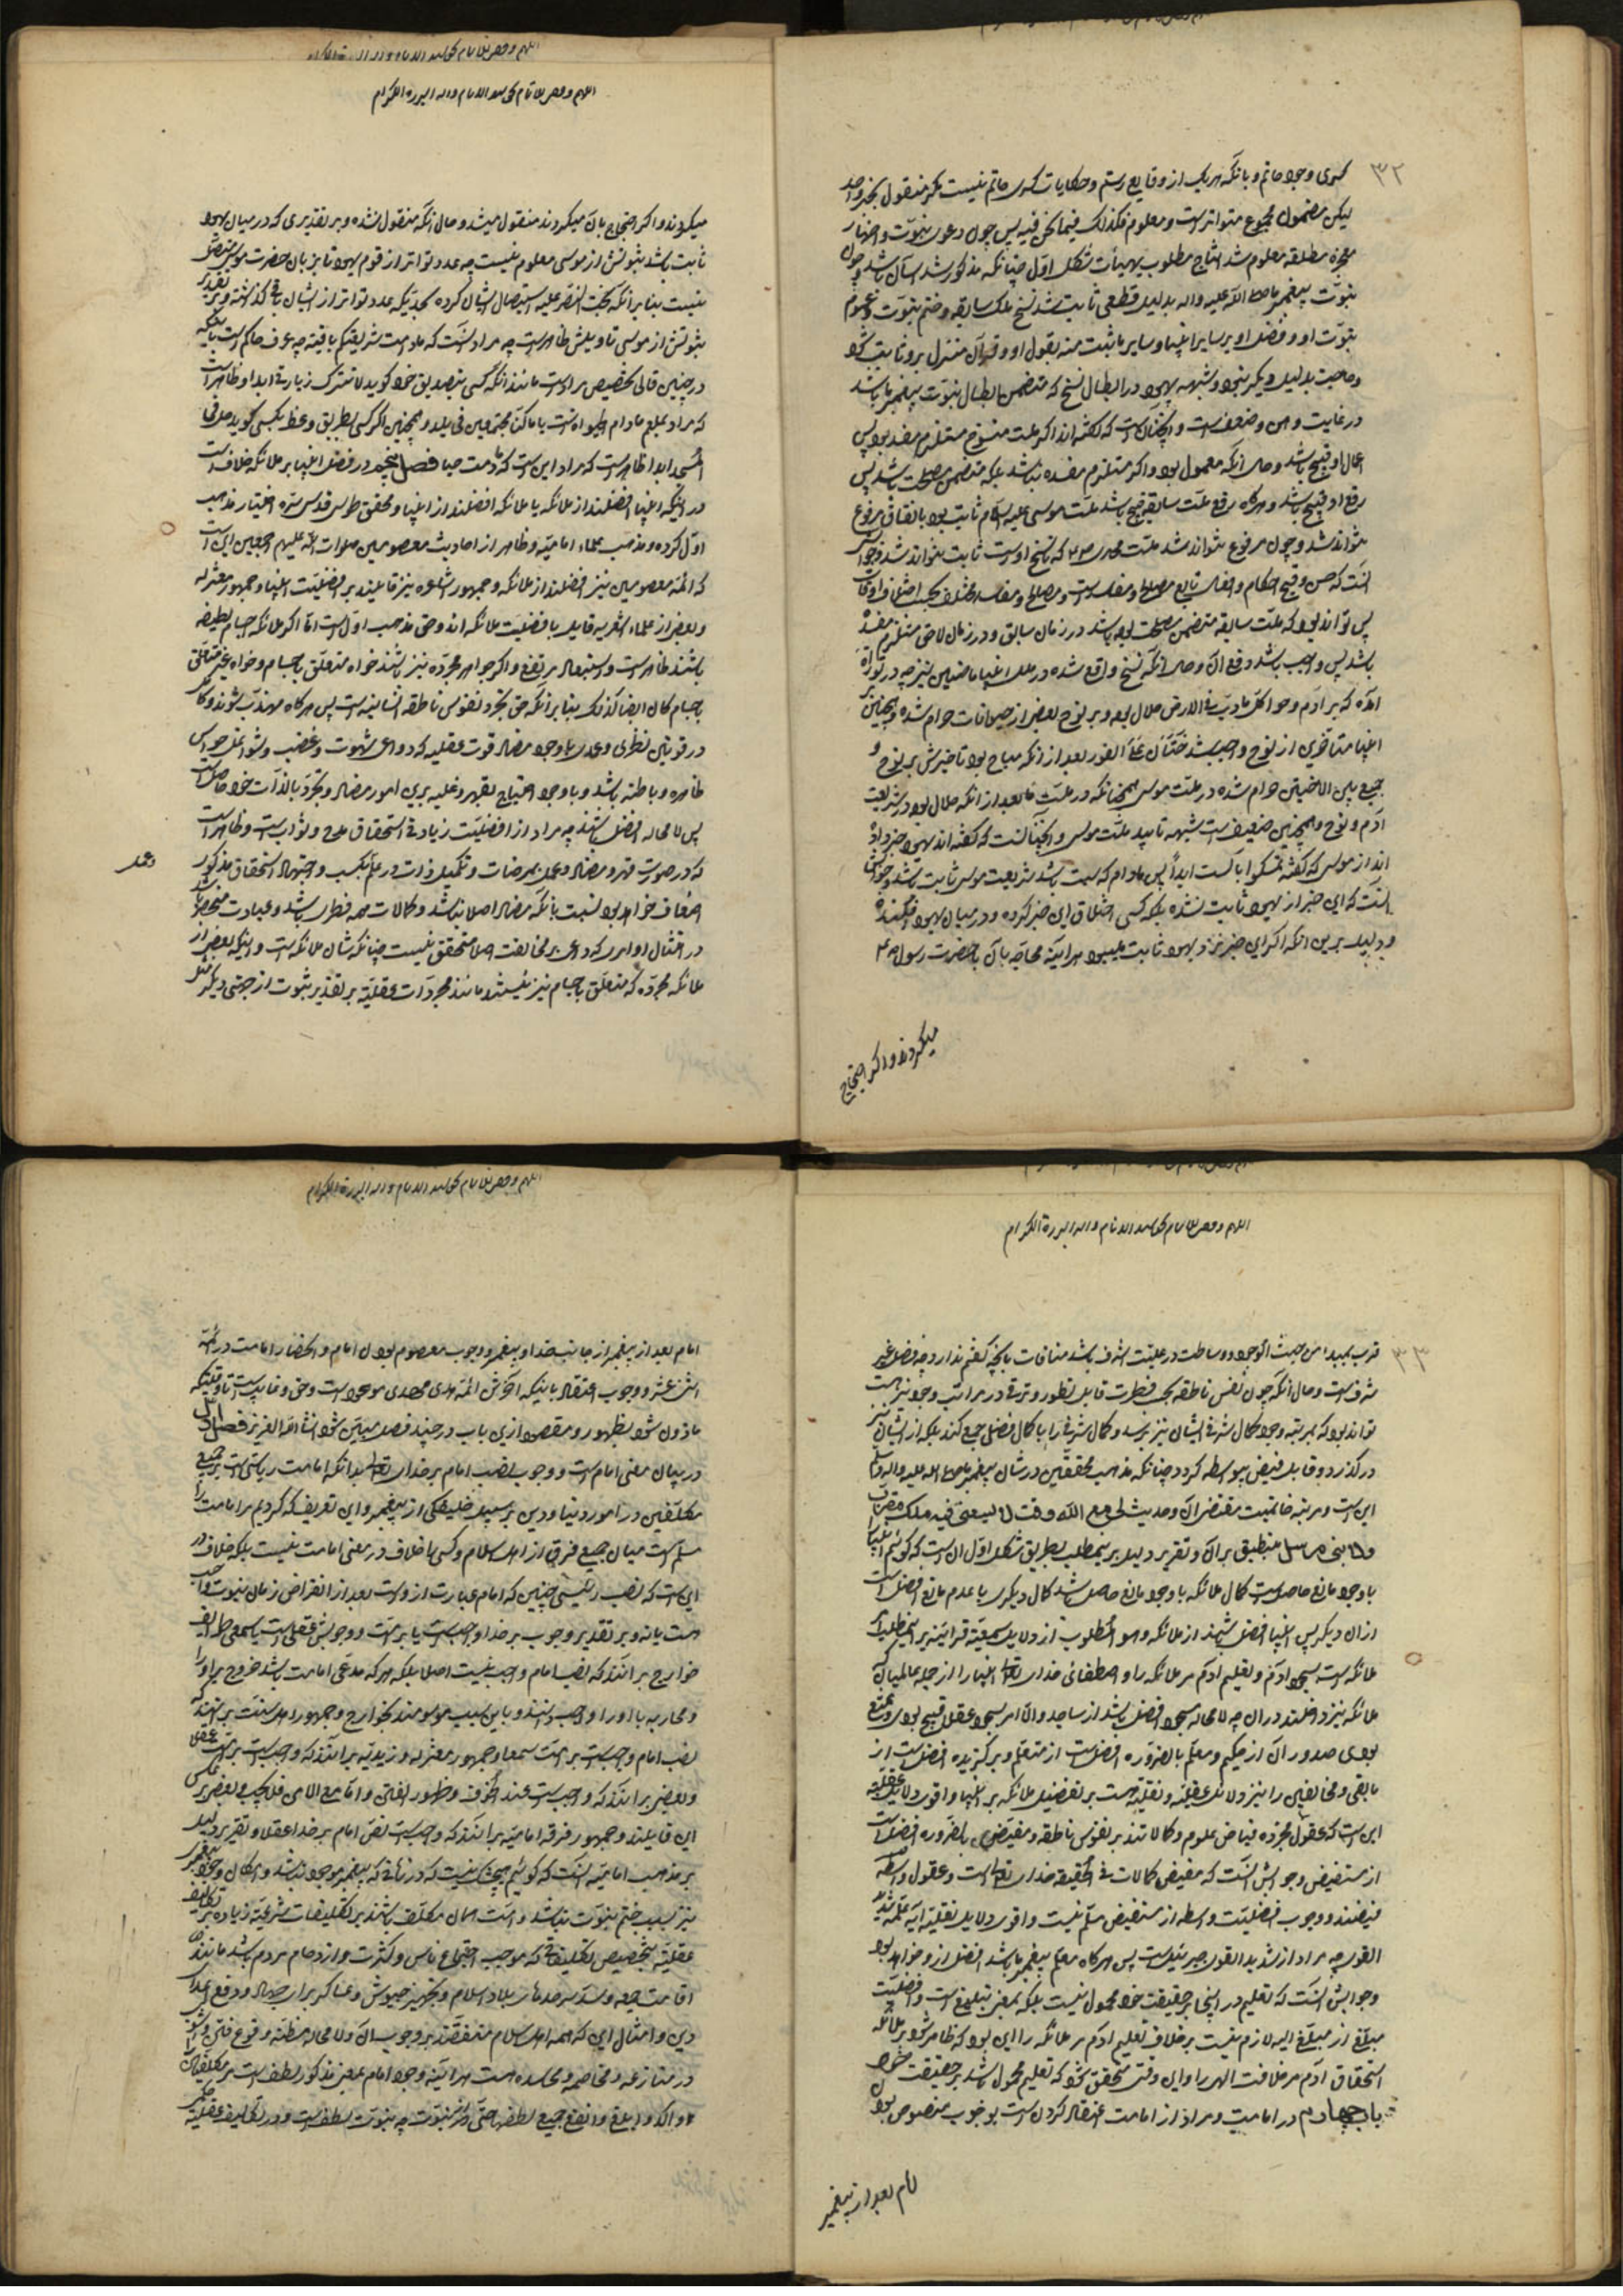 ۳۲
کسری وجود حاتم و بآنکه هریک از وقایع رستم و حکایات کسری حاتم نیست مگر منقول بخبر واحد
لیکن مضمون مجموع متواترست و معلوم فکذلک فیما نحن فیه پس چون دعوی نبوّت و اظهار
معجزهٔ مطلقه معلوم شد انتاج مطلوب بهیئات شکل اول چنانکه مذکور شد آسان باشد و چون
نبوّت پیغمبر ما صلی اللّه علیه واله بدلیل قطعی ثابت شد نسخ ملک سابقه و ختم نبوّت و عموم
نبوّت او و فضل او بر سایر انبیا و سایر ما ثبت منه بقول او و قرآن منزل برو ثابت شود
و حاجت بدلیل دیگر نبود و شبهه یهود در ابطال نسخ که متضمن ابطال نبوّت پیغمبر ما باشد
در غایت وهن و ضعف است و آنچنانست که گفته‌اند اگر ملت منسوخ مستلزم مفسده بود پس
اعمال او قبیح باشد و حال آنکه معمول بود و اگر مستلزم مفسده نباشد بلکه متضمن مصلحت باشد پس
رفع او قبیح باشد و هرگاه رفع ملّت سابقه قبیح باشد ملّت موسی علیه السلام ثابت بود بالاتفاق مرفوع
نتواند شد و چون مرفوع نتواند شد ملّت محمدی ص که ناسخ اوست ثابت نتواند شد و جواب
آنست که حسن و قبح احکام و افعال تابع مصالح و مفاسدست و مصالح و مفاسد مختلف بحسب اختلاف اوقات
پس تواند بود که ملّت سابقه متضمن مصلحت بوده باشد در زمان سابق و در زمان لاحق مستلزم مفسده
باشد پس واجب باشد رفع آن و حال آنکه نسخ واقع شده در ملل انبیا ماضیین نیز چه در توراة
آمده که بر آدم و حوا کل مادبّ فی الارض حلال بوده و بر نوح بعضی از حیوانات حرام شده و همچنین بر
انبیا متأخرین از نوح واجب شد ختنان علی الفور بعد از آنکه مباح بود تأخیرش بر نوح و
جمع بین الاختین حرام شده در ملّت موسی همچنانکه در ملّت ما بعد از آنکه حلال بود در شریعت
آدم و نوح و همچنین ضعیف است شبهه تأیید ملّت موسی و آنچنانست که گفته‌اند یهود خبر داده
اند از موسی که گفته تمسکوا بالسبت ابداً پس مادام که سبت باشد شریعت موسی ثابت باشد و جوابش
آنست که این خبر از یهود ثابت نشده بلکه کسی اختلاق این خبر کرده و در میان یهود افکنده
و دلیل برین آنکه اگر این خبر نزد یهود ثابت میبود هرآینه محاجّه بآن با حضرت رسول ص
میکردند و اگر احتجاج
میکردند و اگر احتجاج بآن میکردند منقول میشد و حال آنکه منقول نشده و بر تقدیری که در میان یهود
ثابت باشد ثبوتش از موسی معلوم نیست چه عدد تواتر از قوم یهود تا بزبان حضرت موسی متصل
نیست بنا بر آنکه بخت النصّر علیه استیصال ایشان کرده بحدیکه عدد تواتر از ایشان باقی نگذاشته و بر تقدیر
ثبوتش از موسی تاویلش ظاهرست چه مراد آنست که مادامت شریعتکم باقیة چه عرف حاکم است بآنکه
در چنین قالی تخصیص مرادست مانند آنکه کسی بتصدیق خود گوید لا تترک زیارتی ابدا و ظاهرست
که مراد بعلم مادام الحیوة است یا ماکنا مجتمعین فی بلد و همچنین اگر کسی بطریق وعظ بکسی گوید صل فی
المسجد ابدا ظاهرست که مراد این است که مادمت حیا فصل پنجم در فضل انبیا بر ملائکه خلاف است
در اینکه انبیا افضلند از ملائکه یا ملائکه افضلند از انبیا و محقق طوسی قدس سره اختیار مذهب
اول کرده و مذهب علماء امامیّه و ظاهر از احادیث معصومین صلوات اللّه علیهم اجمعین این است
که ائمّه معصومین نیز افضلند از ملائکه و جمهور اشاعره نیز قایلند بر افضلیّت انبیا و جمهور معتزله
و بعضی از علماء اشعریه قایل بافضلیّت ملائکه اند و حق مذهب اولست امّا اگر ملائکه اجسام لطیفه
باشند ظاهرست و استبعاد مرتفع و اگر جواهر مجرّده نیز باشند خواه متعلق باجسام و خواه غیر متعلق
باجسام کان ایضا کذلک بنا بر آنکه حق تجرد نفوس ناطقه انسانیه است پس هرگاه مهذّب شوند و کامل
در قوتین نظری و عملی با وجود مضاد قوت عقلیه که دواعی شهوت و غضب و شواغل حواس
ظاهره و باطنه باشد و با وجود احتیاج بقهر و غلبه برین امور مضاده و تجرّد بالذّات خود حاصلست
پس لامحاله افضل باشند چه مراد از افضلیّت زیادتی استحقاق مدح و ثوابست و ظاهرست
که در صورت قهر و مضاد و عمل بمرضات و تکمیل ذات در علم بکسب و اجتهاد استحقاق مذکور
اضعاف خواهد بود نسبت بآنکه مضاد اصلا نباشد و کمالات همه فطری باشد و عبادت منحصر باشد
در امتثال اوامری که داعی بر مخالفت اصلا متحقق نیست چنانکه شأن ملائکه است و اینکه بعضی از
ملائکه مجرّده که متعلّق باجسام نیز نیستند مانند مجردات عقلیّه بر تقدیر ثبوت از جهتی دیگر مثل
۳۳
قرب بمبدا من حیث الوجود و وساطت در علیّت اشرف باشد منافات بآنچه گفتیم ندارد چه فضل غیر
شرفست و حال آنکه چون نفس ناطقه بحسب فطرت قابل تطور و ترقی در مراتب وجود نیز هست
تواند بود که بمرتبه وجود کمال شرفی ایشان نیز برسد و کمال شرفی را با کمال فضلی جمع کند بلکه از ایشان نیز
در گذرد و قابل فیض بیواسطه گردد چنانکه مذهب محققین در شان پیغمبر ما صلی الله علیه واله وسلم
این است و مرتبه خاتمیت مقتضی آن و حدیث لی مع اللّه وقت لا یسعنی فیه ملک مقرب
ولا نبی مرسل منطبق بر آن و تقریر دلیل برین مطلب بطریق شکل اول آن است که گوئیم انبیا
با وجود مانع حاصلست کمال ملائکه با وجود مانع حاصل باشد کمال دیگری با عدم مانع افضل است
از آن دیگر پس انبیا افضل باشند از ملائکه و هو المطلوب از دلایل سمعیّه قرآنیه نیز برین مطلب امر
ملائکه است بسجود آدم و تعلیم آدم مر ملائکه را و اصطفائی خدای تعالی انبیا را از جمله عالمیان که
ملائکه نیز داخلند در آن چه لامحاله مسجود افضل باشد از ساجد و الّا امر بسجود عقلا قبیح بودی و ممتنع
بودی صدور آن از حکیم و معلّم بالضّروره افضلست از متعلّم و برگزیده افضل است از
مابقی و مخالفین را نیز دلائل عقلیّه و نقلیّه هست بر تفضیل ملائکه بر انبیا و اقوی دلایل عقلیّه
این است که عقول مجرّده فیاض علوم و کمالاتند بر نفوس ناطقه و مفیض بالضّروره افضل است
از مستفیض و جوابش آنست که مفیض کمالات فی الحقیقه خدای تعالی است و عقول واسطهٔ
فیضند و وجوب افضلیّت واسطه از مستفیض مسلّم نیست و اقوی دلایل نقلیّه آیه علّمه شدید
القوی چه مراد از شدید القوی جبرئیلست پس هرگاه معلّم پیغمبر ما باشد افضل ازو خواهد بود
و جوابش آنست که تعلیم در اینجا بر حقیقت خود محمول نیست بلکه بمعنی تبلیغ است و افضلیّت
مبلّغ از مبلّغ الیه لازم نیست بر خلاف تعلیم آدم مر ملائکه را این بود که ظاهر شود بر ملائکه
استحقاق آدم مر خلافت الهی را و این وقتی متحقق شود که تعلیم محمول باشد بر حقیقت خود
باب چهارم در امامت و مراد از امامت اعتقاد کردن است بوجوب منصوص بودن
امام بعد از پیغمبر
امام بعد از پیغمبر از جانب خدا و پیغمبر و وجوب معصوم بودن امام و انحصار امامت در ائمّهٔ
اثنی عشر و وجوب اعتقاد باینکه آخرین ائمّه هدی مهدی موعودست و حی و غایبست تا وقتیکه
ماذون شود بظهور و مقصود ازین باب در چند فصل مبیّن شود انشاءاللّه العزیز فصل اول
در بیان معنی امام است و وجوب نصب امام بر خدای تعالی بدانکه امامت ریاستی است بر جمیع
مکلّفین در امور دنیا و دین بر سبیل خلیفگی از پیغمبر و این تعریف که کردیم مر امامت را
مسلّم است میان جمیع فرق از اهل اسلام و کسی را خلاف در معنی امامت نیست بلکه خلاف در
این است که نصب رئیسی چنین که امام عبارت از وست بعد از انقراض زمان نبوت واجب
هست یا نه و بر تقدیر وجوب بر خدا واجبست یا بر امّت و وجوبش عقلی است یا سمعی طایفه
خوارج بر آنند که نصب امام واجب نیست اصلا بلکه هرکه مدعی امامت باشد خروج بر او را
و محاربه با او را واجب دانند و باین سبب موسومند بخوارج و جمهور اهل سنّت بر آنند که
نصب امام واجبست بر امّت سمعا و جمهور معتزله و زیدیّه بر آنند که واجبست بر امّت عقلا
و بعضی بر آنند که واجبست عند الخوف و ظهور الفتن و امّا مع الامن فلا یجب و بعضی بر عکس
این قایلند و جمهور فرقه امامیّه بر آنند که واجب است نصب امام بر خدا عقلا و تقریر دلیل
بر مذهب امامیّه آنست که گوئیم هیچ شک نیست که در زمانی که پیغمبر موجود نباشد و امکان وجود پیغمبر
نیز بسبب ختم نبوّت نباشد و امّت همان مکلّف باشند بر تکلیفات شرعیّه زیاده بر تکالیف
عقلیّه بتخصیص تکلیفاتی که موجب اجتماع ناس و کثرت و ازدحام مردم باشد مانند
اقامت جمعه و سدّ سرحدهای بلاد اسلام و تجهیز جیوش و عساکر برای جهاد و دفع اعداء
دین و امثال این که همه اهل اسلام متفقند بر وجوب آن و لامحاله مظنّه وقوع فتن و شرور
در منازعه و مخاصمه و محاسده هست هرآینه وجود امام بمعنی مذکور لطف است مر مکلّفین را
و اکد و ابلغ و انفع جمیع لطفها حتی از نبوّت چه نبوّت لطف است و در تکالیف عقلیّه